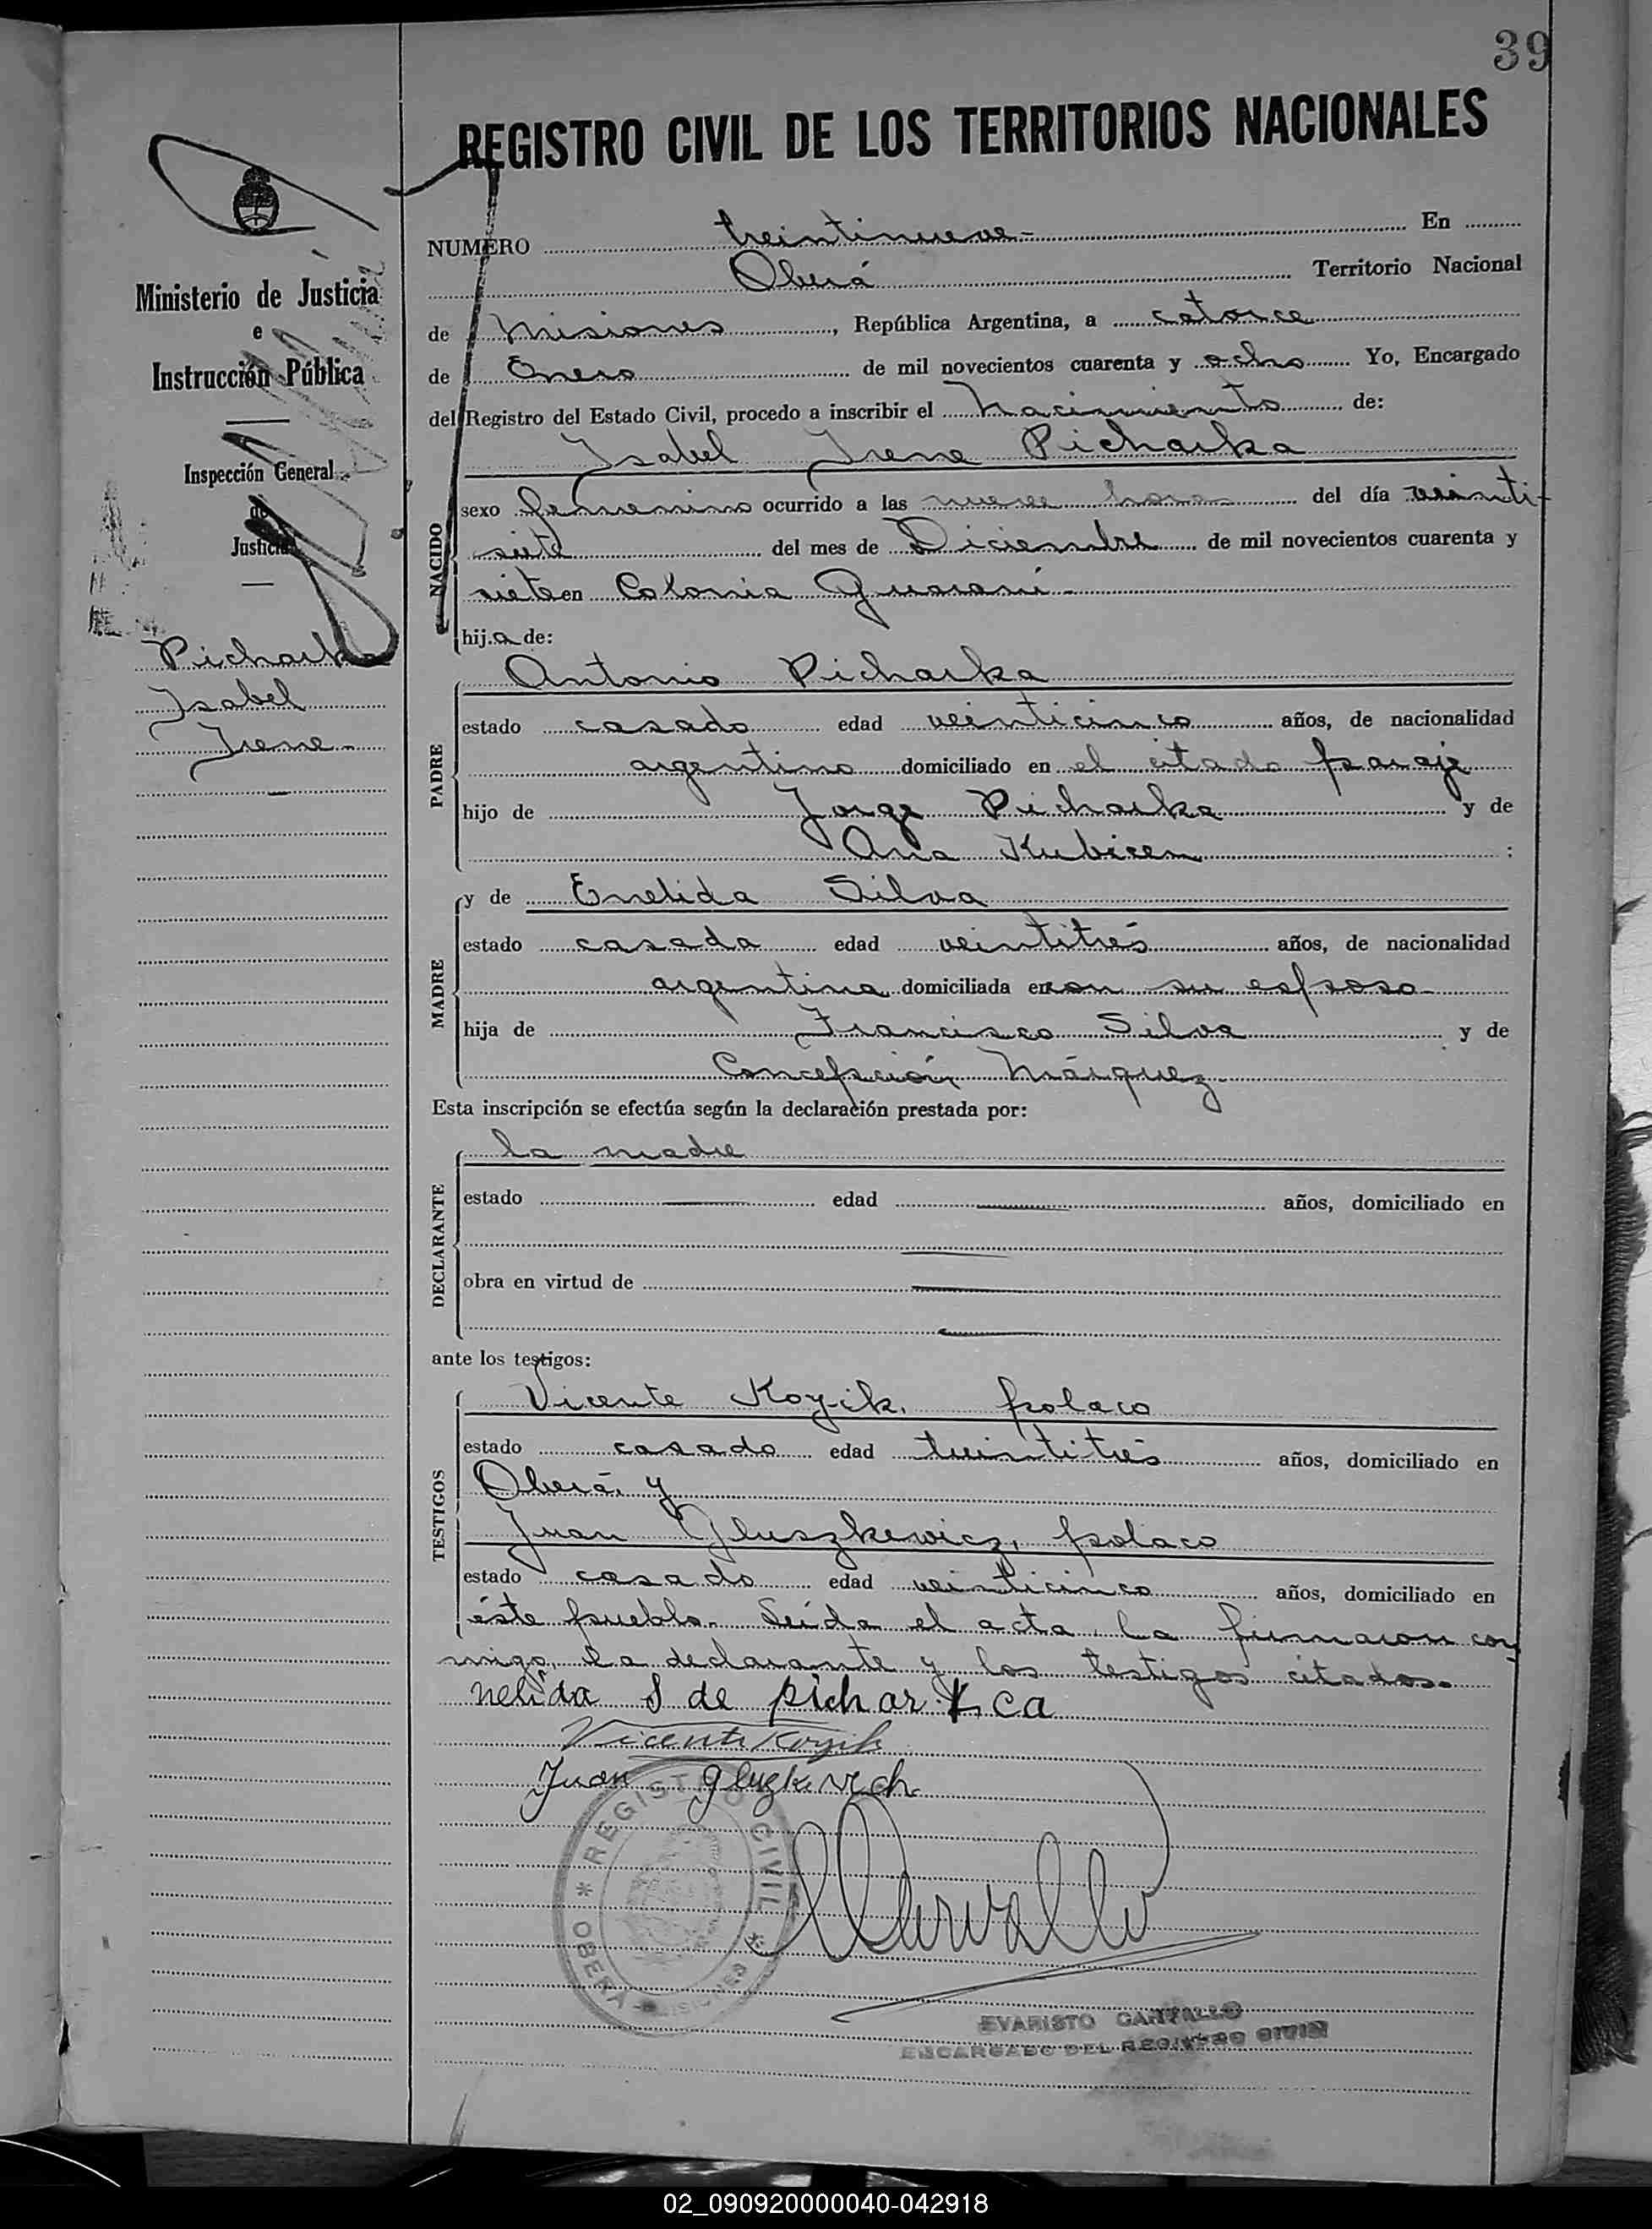 39
REGISTRO CIVIL DE LOS TERRITORIOS NACIONALES
Ministerio de Justicia
e
Instrucción Pública
Inspección General
de
Justicia
Picharka
Isabel
Irene.-
NUMERO treintinueve.- En
Oberá Territorio Nacional
de Misiones, República Argentina, a catorce
de Enero de mil novecientos cuarenta y ocho Yo, Encargado
del Registro del Estado Civil, procedo a inscribir el Nacimiento de:
Isabel Irene Picharka
NACIDO
sexo femenino ocurrido a las nueve horas del día veinti-
siete del mes de Diciembre de mil novecientos cuarenta y
siete en Colonia Guaraní.-
hij.a de:
PADRE
Antonio Picharka
estado casado edad veinticinco años, de nacionalidad
argentino domiciliado en el citado paraje
hijo de Jorge Picharka y de
Ana :
MADRE
y de Enelida Silva
estado casada edad veintitrés años, de nacionalidad
argentina domiciliada en con su esposo
hija de Francisco Silva y de
Concepción Márquez
Esta inscripción se efectúa según la declaración prestada por:
DECLARANTE
la madre
estado edad años, domiciliado en
obra en virtud de
ante los testigos:
TESTIGOS
Vicente Kozik, polaco
estado casado edad treintitrés años, domiciliado en
Oberá, y
Juan Gluszkewicz, polaco
estado casado edad veinticinco años, domiciliado en
éste pueblo. Leída el acta, la firmaron con-
migo, la declarante y los testigos citados.
nelida S de picharkca
Vicente Kozik
Juan
REGISTRO CIVIL
* OBERA - MISIONES *
EVARISTO CARVALLO
ENCARGADO DEL REGISTRO CIVIL
02_090920000040-042918